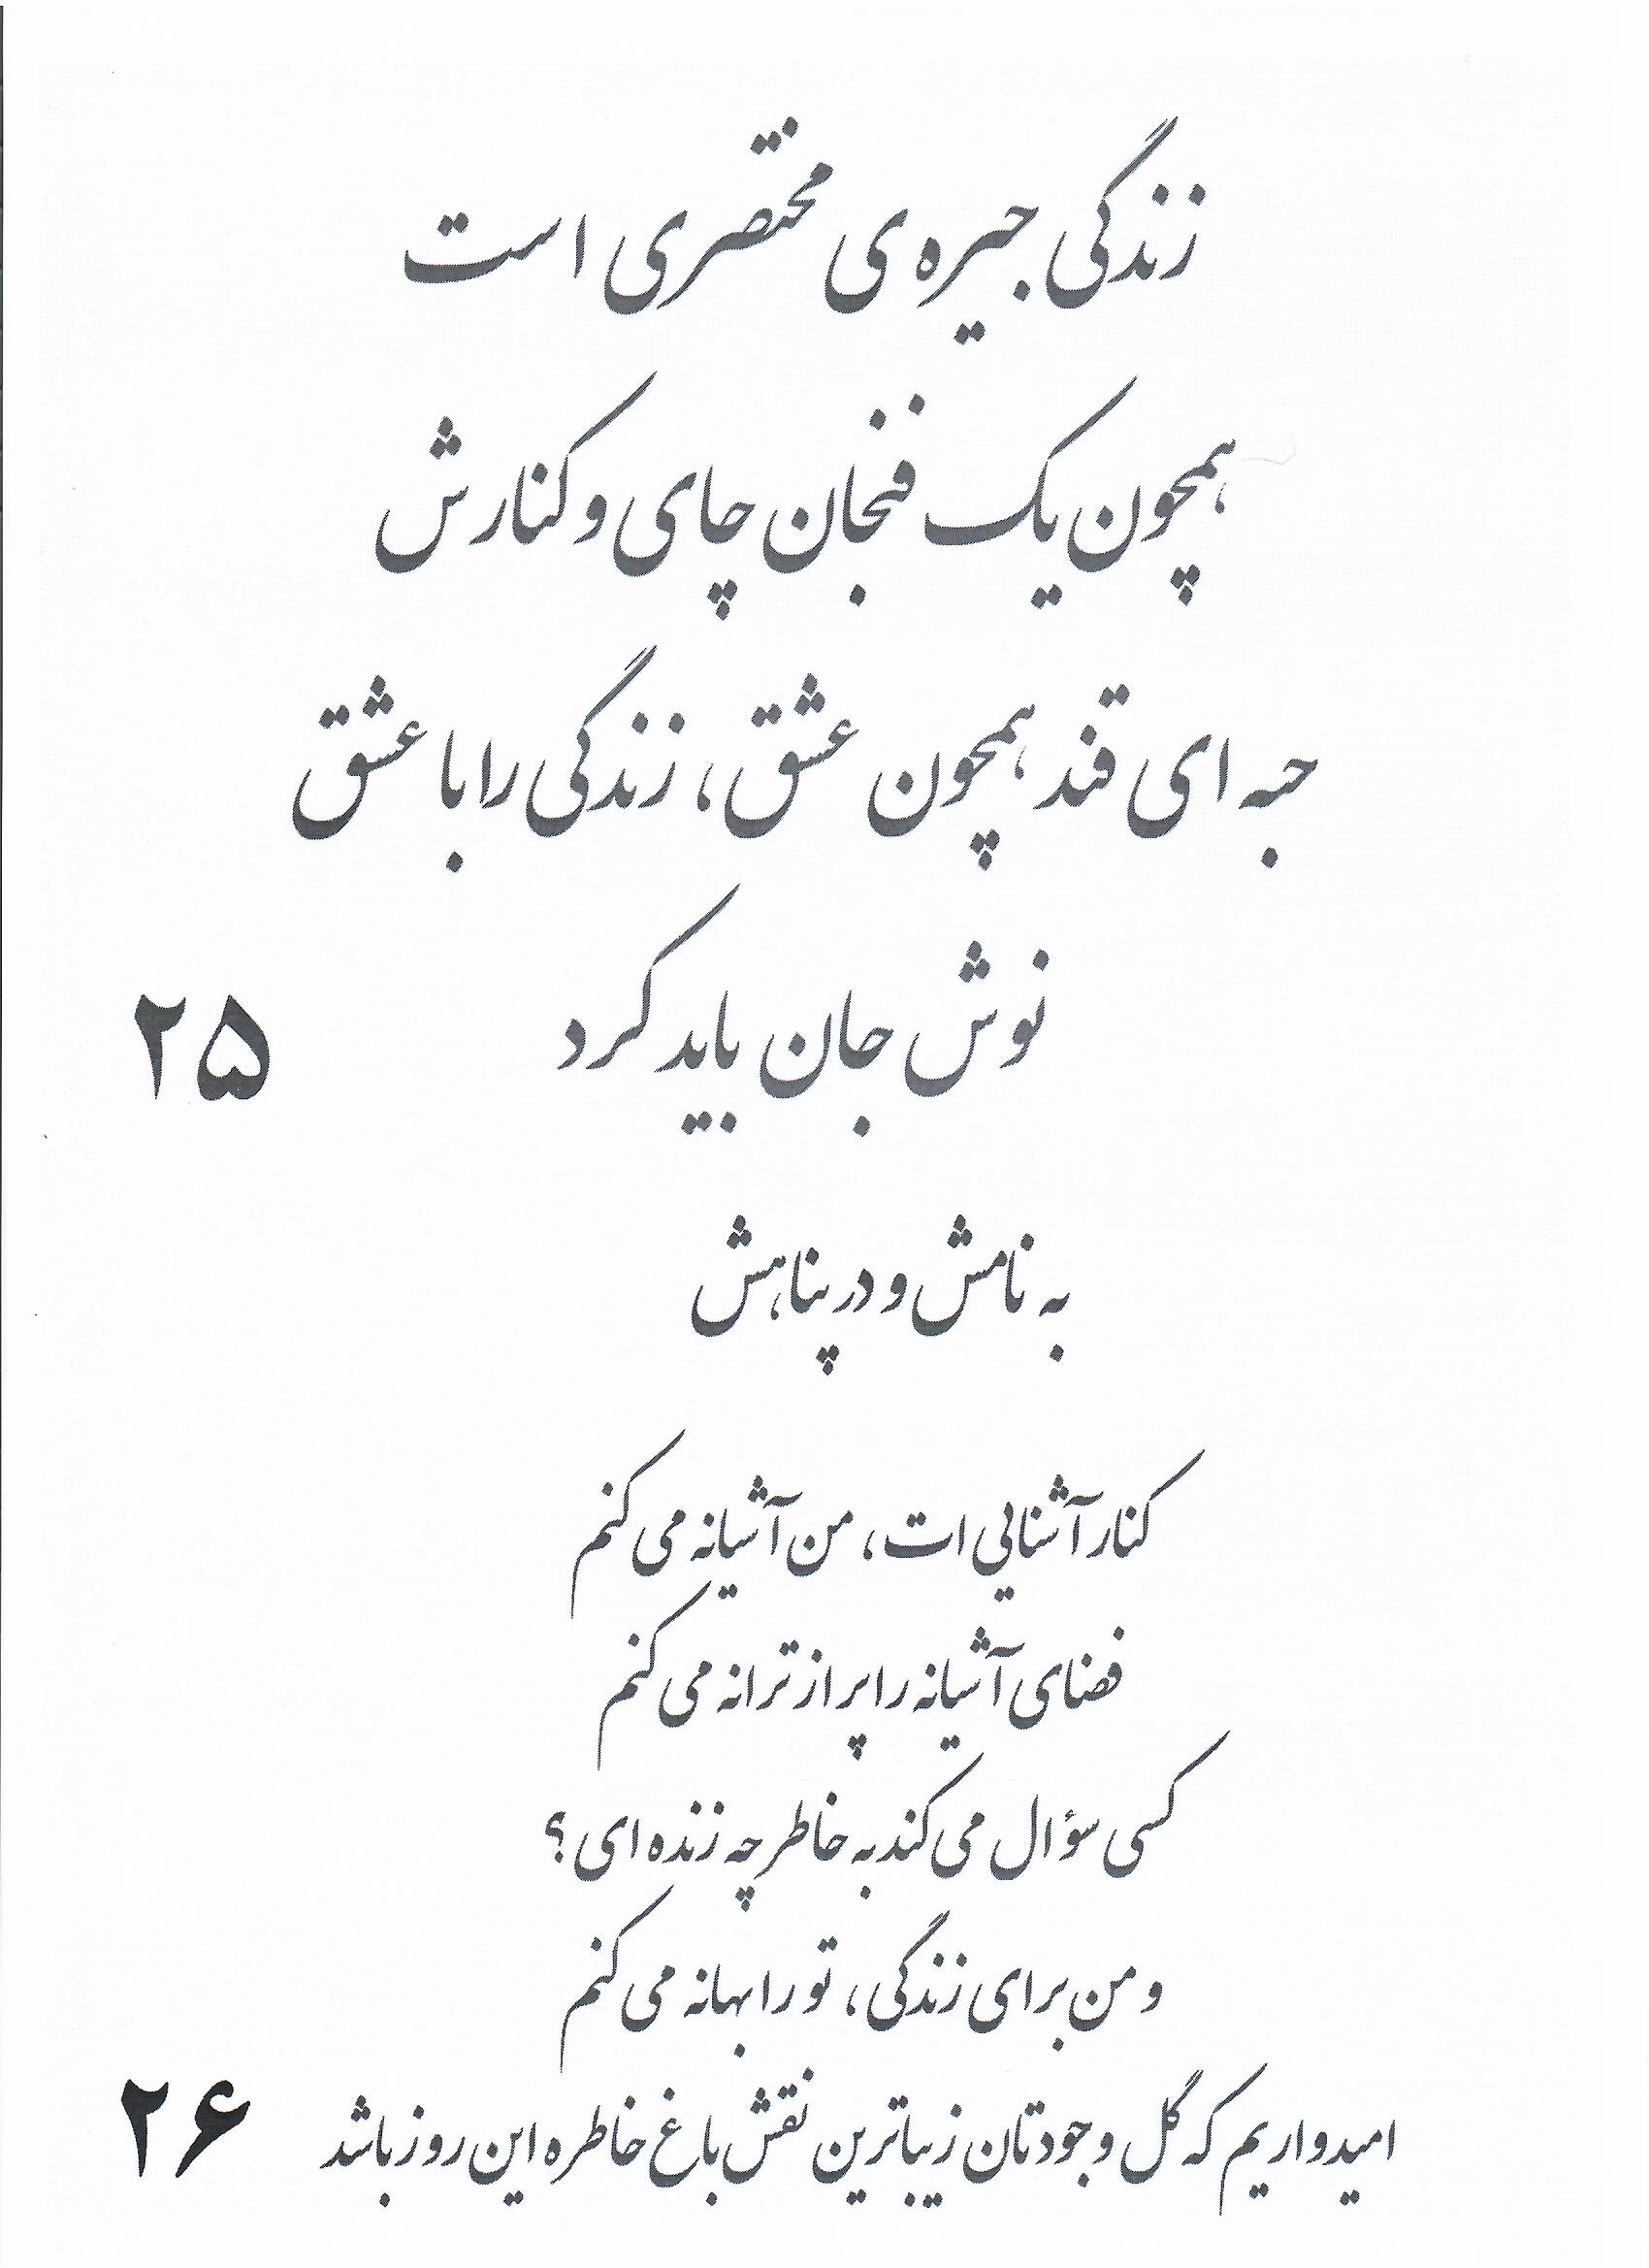 زندگی جیره ی مختصری است
همچون یک فنجان چای و کنارش
حبه ای قند همچون عشق، زندگی را با عشق
نوش جان باید کرد
۲۵
به نامش و در پناهش
کنار آشنایی ات، من آشیانه می کنم
فضای آشیانه را پر از ترانه می کنم
کسی سؤال می کند به خاطر چه زنده ای؟
و من برای زندگی، تو را بهانه می کنم
امیدواریم که گل وجودتان زیباترین نقش باغ خاطره این روز باشد
۲۶